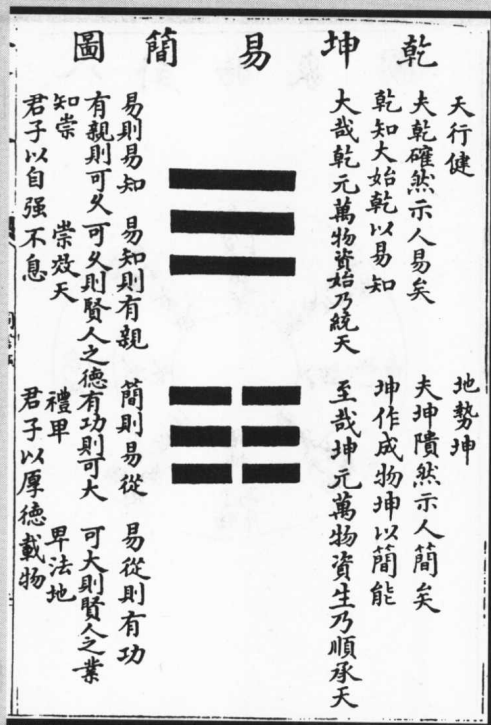 乾坤易簡圖
天行健
夫乾確然示人易矣
乾知大始乾以易知
大哉乾元萬物資始乃統天
地勢坤
夫坤隤然示人簡矣
坤作成物坤以簡能
至哉坤元萬物資生乃順承天
易則易知 易知則有親
簡則易從 易從則有功
有親則可久 可久則賢人之德
有功則可大 可大則賢人之業
知崇 崇效天
禮卑 卑法地
君子以自强不息
君子以厚德載物